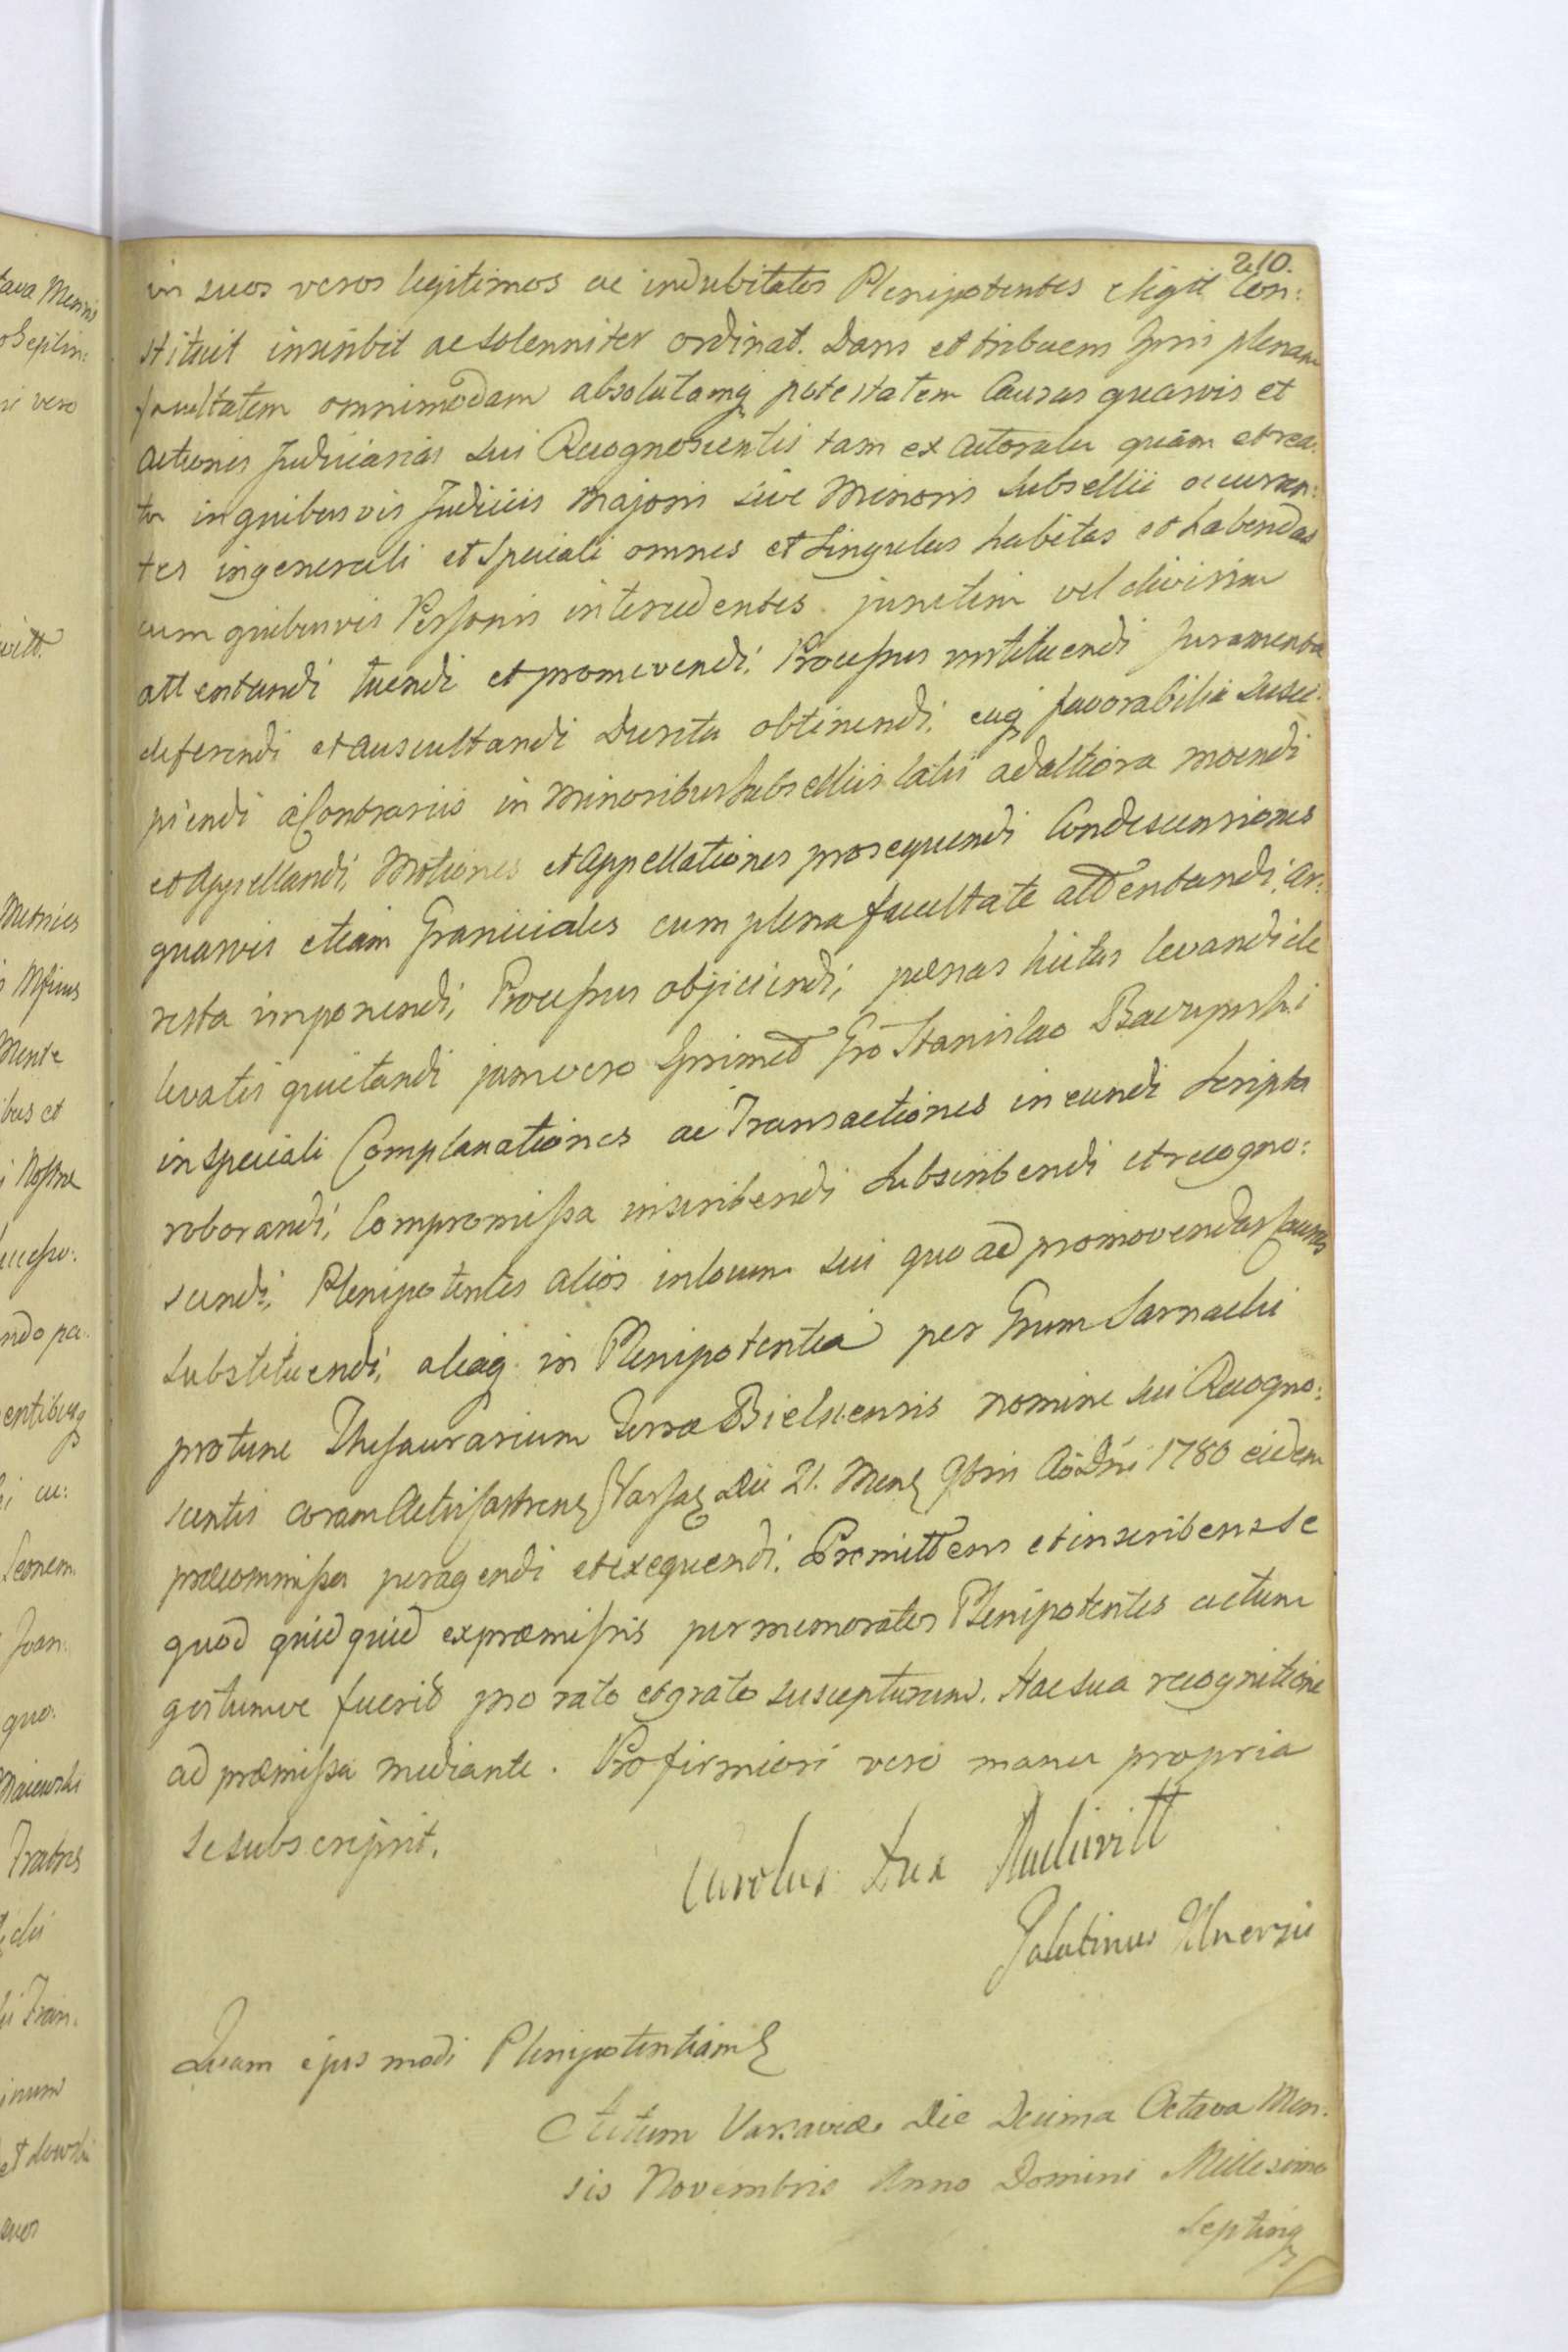 210.
in suos veros legitimos ac indubitatos Plenipotentes eligit Con:
stituit inscribit ac Solenniter ordinat. Dans et tribuens Ipsis plenam
facultatem omnimodam absolutamq potestatem Causas quasvis et
actiones Judiciarias sui Recognoscentis tam ex actoratu quam et rea:
tu in quibusvis Judiciis Majoris sive Minoris Subsellii occurren:
tes in generali et Speciali omnes et Singulas habitas et habendas
cum quibusvis Personis intercedentes junctim vel divisim
attentandi tuendi et promovendi; Processus instituendi Juramenta
deferendi et auscultandi Decreta obtinendi, eaq favorabilia Susci:
piendi à Contrariis in Minoribus Subselliis latis ad altiora movendi
et Appellandi, Motiones et Appellationes prosequendi Condescensiones
quasvis etiam Graniciales cum plena facultate attentandi, ar:
resta imponendi, Processus objiciendi, pænas luitas levandi de
levatis quietandi jam vero Grosso Stanislao
in Speciali Complanationes ac Transactiones ineundi Scripta
roborandi, Compromissa inscribendi Subscribendi et recogno:
scendi, Plenipotentes alios in locum sui quo ad promovendas Causas
Substituendi, aliaq in Plenipotentia per Grum Sarnacki
pro tunc Thesaurarium Terræ Bielscensis nomine sui Recogno:
scentis coram Actis Castren Varsav Die 21. Mens 9bris Ao Dni 1780 eidem
præcommissa peragendi et exequendi. Promittens et inscribens se
quod quidquid ex præmissis per memoratos Plenipotentes actum
gestumve fuerit pro rato et grato suscepturum. Hac sua recognitione
ad præmissa mediante. Pro firmiori vero manu propria
se subscripsit.
Carolus Dux Radivitt
Palatinus Vilnensis
Quam ejusmodi Plenipotentiam
Actum Varsaviæ Die Decima Octava Men:
sis Novembris Anno Domini Millesimo
Septing